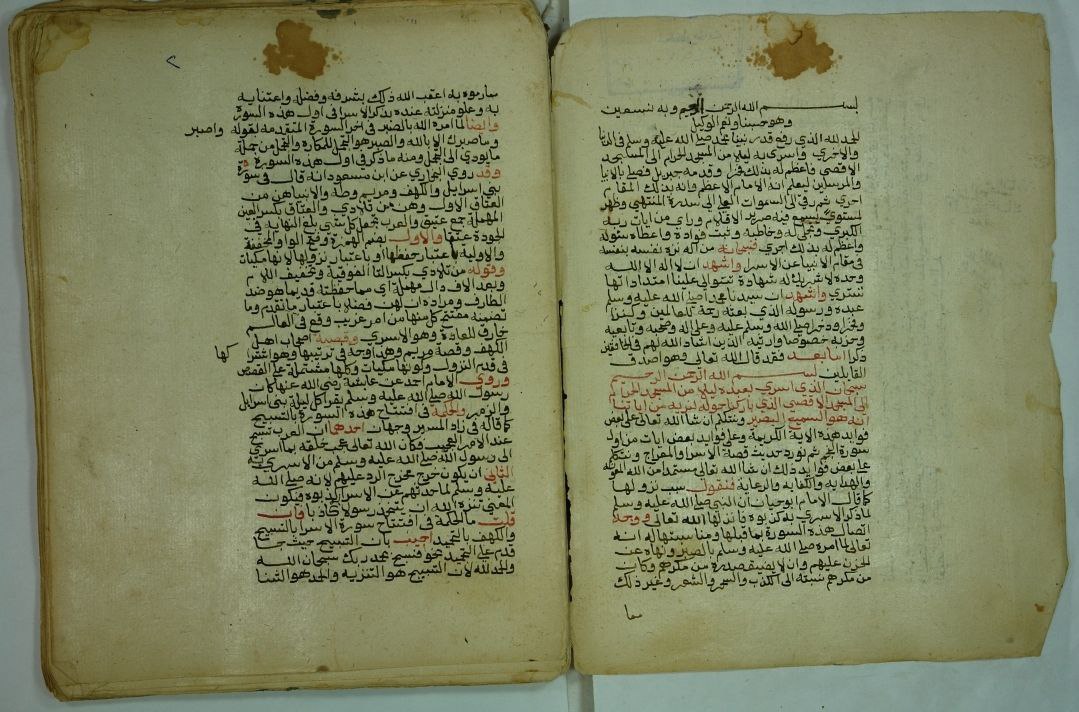 بسم الله الرحمن الرحيم وبه نستعين
وهو حسبنا ونعم الوكيل
الحمد لله الذي رفع قدر نبينا محمد صلى الله عليه وسلم في الدنيا
والاخري واسري به ليلا من المسجد الحرام الى المسجد
الاقصي واعظم له بذلك فخرا وقدمه جبريل فصلي بالانبيا
والمرسلين ليعلم انه الامام الاعظم وانه بذلك المقام
احري ثم رقي الى السموات العلى الى سدرة المنتهي وظهر
لمستوي يسمع فيه صرير الاقلام وراي من ايات ربه
الكبري وتجلى له وخاطبه وثبت فواده واعطاه سوله
واعظم له بذلك اجري فسبحانه من اله نزه نفسه بنفسه
في مقام الانبيا عن الاسرا واشهد ان لا اله الا الله
وحده لا شريك له شهادة تتوالى علينا امتداداتها
تتري واشهد ان سيدنا محمدا صلى الله عليه وسلم
عبده ورسوله الذي بعثه رحمة للعالمين وكنزا
وفخرا وذخرا صلى الله وسلم عليه وعلى اله وصحبه وتابعيه
وحزبه خصوصا وارثيه الذين اشاد الله لهم في الخافقين
ذكرا اما بعد فقد قال الله تعالى وهو اصدق
القايلين بسم الله الرحمن الرحيم
سبحان الذي اسري بعبده ليلا من المسجد الحرام
الى المسجد الاقصي الذي باركنا حوله لنريه من اياتنا
انه هو السميع البصير ونتكلم ان شا الله تعالى على بعض
فوايد هذه الاية الكريمة وعلى فوايد بعض ايات من اول
سورة النجم ثم نورد حديث قصة الاسرا والمعراج ونتكلم
على بعض فوايد ذلك ان شا الله تعالى مستمدا من الله المعونة
والهدايه والكفايه والرعاية فنقول سبب نزولها
كما قال الامام ابو حيان ان النبي صلى الله عليه وسلم
لما ذكر الاسري به كذبوه فانزلها الله تعالى ووجه
اتصال هذه السورة بما قبلها ومناسبتها له انه
تعالى لما امره صلى الله عليه وسلم بالصبر ونهاه عن
الحزن عليهم وان لا يضيق صدره من مكرهم وكان
من مكرهم نسبته الى الكذب والسحر والشعر وغير ذلك
مما
٢
رموه به اعقب الله ذلك بشرفه وفضله واعتنايه
به وعلو منزلته عنده بذكر الاسرا في اول هذه السورة
وايضا لما امره الله بالصبر في اخر السورة المتقدمه بقوله واصبر
وما صبرك الا بالله والصبر هو التحمل للمكاره والتحمل من جملة
ما يودي الى التجمل ومنه ما ذكر في اول هذه السورة
وقد روي البخاري عن ابن مسعود انه قال في سورة
بني اسرايل والكهف ومريم وطه والانبيا هن من
العتاق الاول وهن من تلادي والعتاق بكسر العين
المهملة جمع عتيق والعرب تجعل كل شي بلغ النهاية في
الجودة عتيقا والاول بضم الهمزة وفتح الواو المخففة
والاولية باعتبار حفظها او باعتبار نزولها لانها مكيات
وقوله من تلادي بكسر التا الفوقية وتخفيف اللام
وبعد الالف دال مهملة اي مما حفظته قديما هو ضد
الطارف ومراده ان لهن فضلا باعتبار ما تقدم وما
تضمنه مفتتح كل منها من امر غريب وقع في العالم
خارق للعادة وهو الاسري وقصة اصحاب اهل
الكهف وقصة مريم وهذا وجه في ترتيبها وهو اشتراكها
في قدم النزول وكونها مكيات وكلها مشتملة على القصص
وروي الامام احمد عن عايشة رضي الله عنها كان
رسول الله صلى الله عليه وسلم يقرا كل ليلة بني اسرايل
والزمر والحكمة في افتتاح هذه السورة بالتسبيح
كما قاله في زاد المسير وجهان احدهما ان العرب تسبح
عند الامر العجيب فكان الله تعالى عجب خلقه بما اسري
الى رسول الله صلى الله عليه وسلم من الاسري به
الثاني ان يكون خرج مخرج الرد عليهم لانه صلى الله
عليه وسلم لما حدثهم عن الاسرا كذبوه فيكون
المعني تنزه الله ان يتخذ رسولا كذابا فان
قلت ما الحكمة في افتتاح سورة الاسرا بالتسبيح
والكهف بالتحميد اجيب بان التسبيح حيث جا
قدم على التحميد نحو فسبح بحمد ربك سبحان الله
والحمد لله لان التسبيح هو التنزيه والحمد هو الثنا